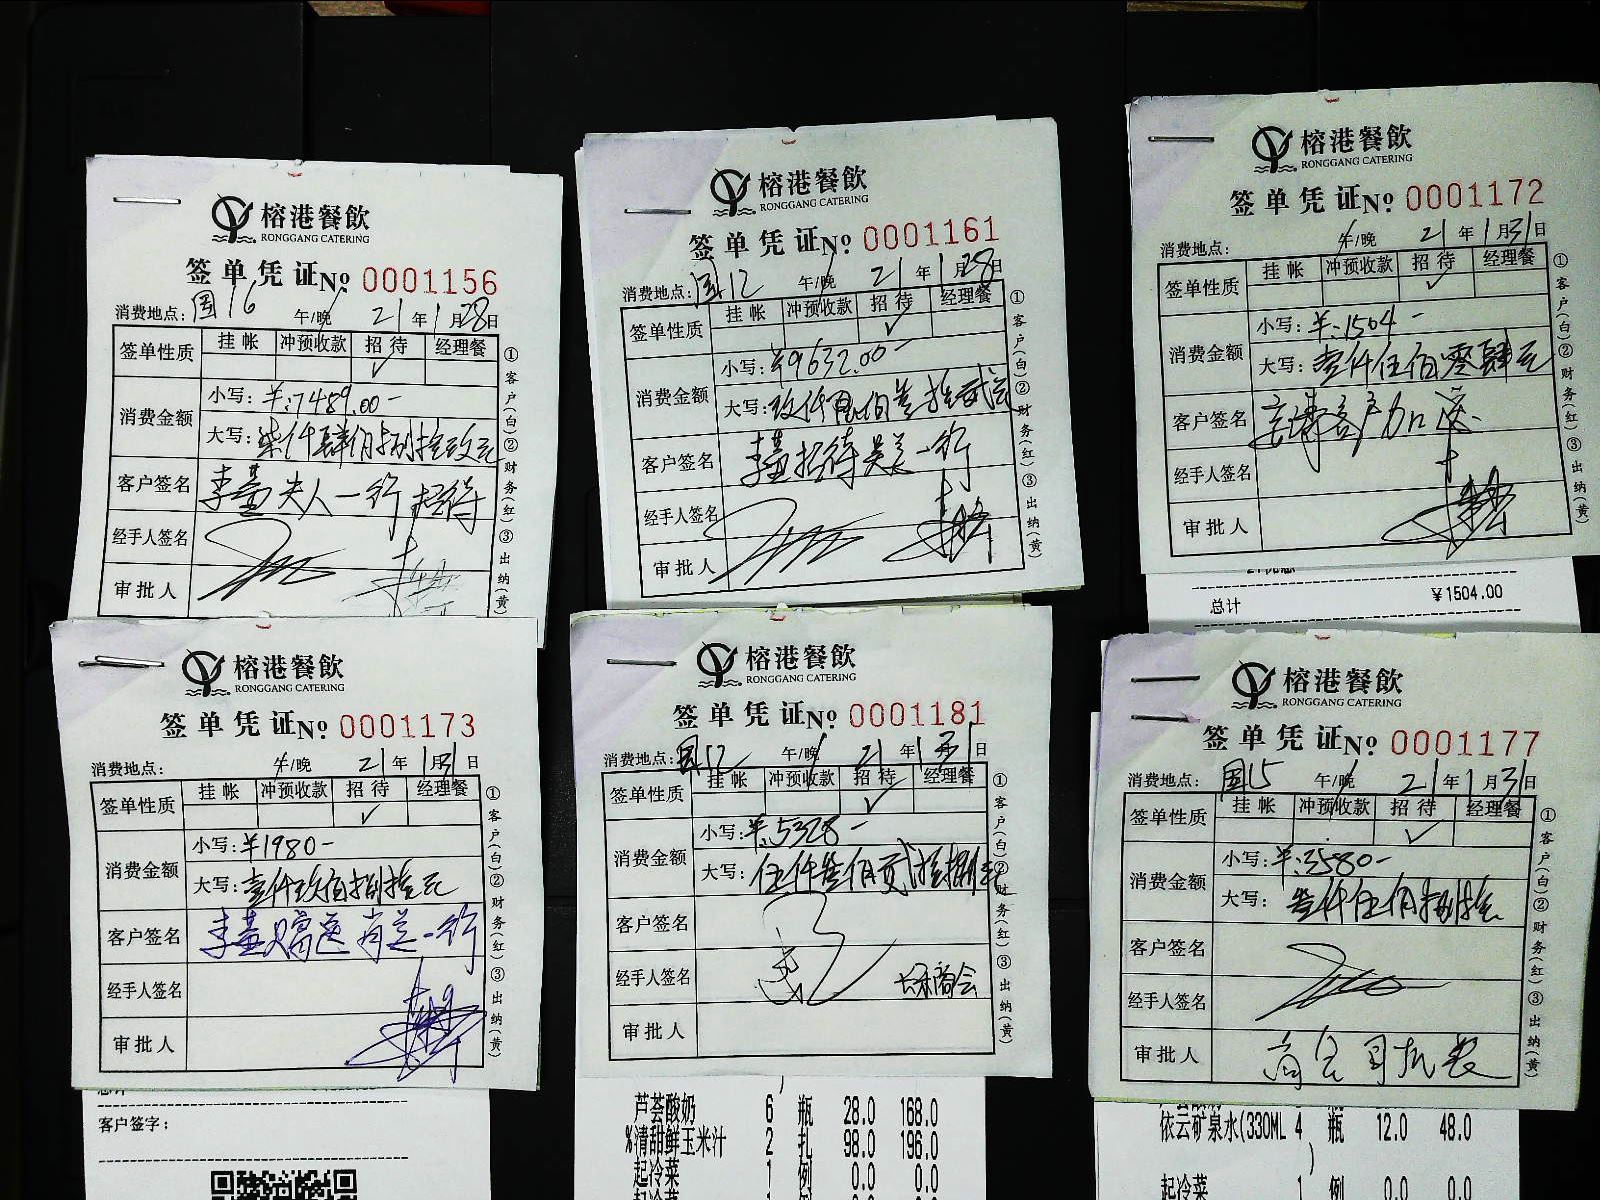 榕港餐飲
RONGGANG CATERING
签单凭证 No 0001156
消费地点: 国16 午/晚 21年1月28日
签单性质 挂帐 冲预收款 招待 经理餐
✓
消费金额 小写: ¥:7489.00-
大写: 柒仟肆佰捌拾玖元
客户签名 李董夫人一行招待
经手人签名
审批人
①客户(白)②财务(红)③出纳(黄)
榕港餐飲
RONGGANG CATERING
签单凭证 No 0001161
消费地点: 国12 午/晚 21年1月28日
签单性质 挂帐 冲预收款 招待 经理餐
✓
消费金额 小写: ¥9632.00-
大写: 玖仟陆佰叁拾贰元
客户签名 李董招待吴总一行
经手人签名
审批人
①客户(白)②财务(红)③出纳(黄)
榕港餐飲
RONGGANG CATERING
签单凭证 No 0001172
消费地点: 午/晚 21年1月31日
签单性质 挂帐 冲预收款 招待 经理餐
✓
消费金额 小写: ¥:1504-
大写: 壹仟伍佰零肆元
客户签名 客户加
经手人签名
审批人
①客户(白)②财务(红)③出纳(黄)
总计 ¥1504.00
榕港餐飲
RONGGANG CATERING
签单凭证 No 0001173
消费地点: 午/晚 21年1月31日
签单性质 挂帐 冲预收款 招待 经理餐
✓
消费金额 小写: ¥1980-
大写: 壹仟玖佰捌拾元
客户签名 李董 一行
经手人签名
审批人
①客户(白)②财务(红)③出纳(黄)
客户签字:
榕港餐飲
RONGGANG CATERING
签单凭证 No 0001181
消费地点: 国12 午/晚 21年1月31日
签单性质 挂帐 冲预收款 招待 经理餐
✓
消费金额 小写: ¥:5328-
大写: 伍仟叁佰贰拾捌元
客户签名
经手人签名 商会
审批人
①客户(白)②财务(红)③出纳(黄)
芦荟酸奶 6 瓶 28.0 168.0
%清甜鲜玉米汁 2 扎 98.0 196.0
起冷菜 1 例 0.0 0.0
榕港餐飲
RONGGANG CATERING
签单凭证 No 0001177
消费地点: 国15 午/晚 21年1月31日
签单性质 挂帐 冲预收款 招待 经理餐
✓
消费金额 小写: ¥:3580-
大写: 叁仟伍佰捌拾元
客户签名
经手人签名
审批人 商会司机餐
①客户(白)②财务(红)③出纳(黄)
依云矿泉水(330ML 4 瓶 12.0 48.0
)
起冷菜 1 例 0.0 0.0